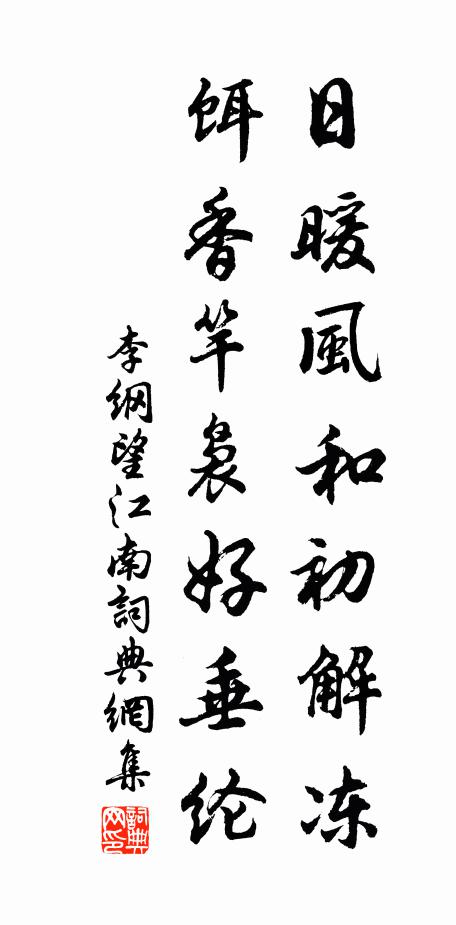 日暖風和初解冻
餌香竿袅好垂纶
李纲望江南詞典網集
詞典
网印